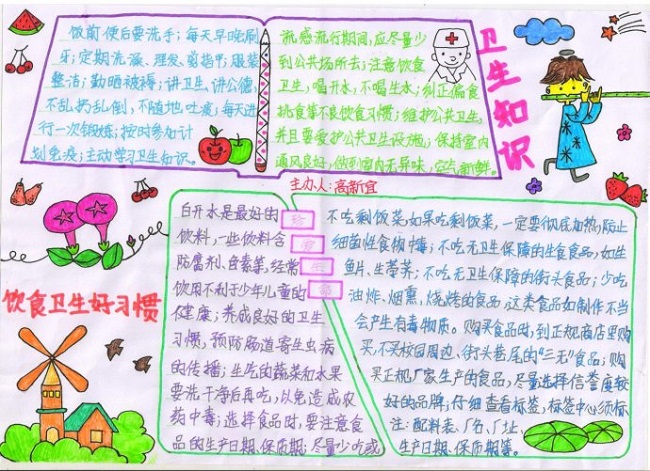 饭前便后要洗手;每天早晚刷
牙;定期洗澡、理发、剪指甲;服装
整洁;勤晒被褥;讲卫生、讲公德,
不乱扔乱倒,不随地吐痰;每天进
行一次锻炼;按时参加计
划免疫;主动学习卫生知识。
流感流行期间,应尽量少
到公共场所去;注意饮食
卫生,喝开水,不喝生水;纠正偏食
挑食等不良饮食习惯;维护公共卫生,
并且要爱护公共卫生设施;保持室内
通风良好,做到室内无异味,空气新鲜。
卫生知识
主办人:高新宜
饮食卫生好习惯
白开水是最好的
饮料,一些饮料含
防腐剂、色素等,经常
饮用不利于少年儿童的
健康;养成良好的卫生
习惯,预防肠道寄生虫病
的传播;生吃的蔬菜和水果
要洗干净后再吃,以免造成农
药中毒;选择食品时,要注意食
品的生产日期、保质期;尽量少吃或
不吃剩饭菜,如果吃剩饭菜,一定要彻底加热,防止
细菌性食物中毒;不吃无卫生保障的生食食品,如生
鱼片、生荸荠;不吃无卫生保障的街头食品;少吃
油炸、烟熏、烧烤的食品,这类食品如制作不当
会产生有毒物质。购买食品时,到正规商店里购
买,不买校园周边、街头巷尾的“三无”食品;购
买正规厂家生产的食品,尽量选择信誉度较
好的品牌,仔细查看标签,标签中必须标
注:配料表、厂名、厂址、
生产日期、保质期等。